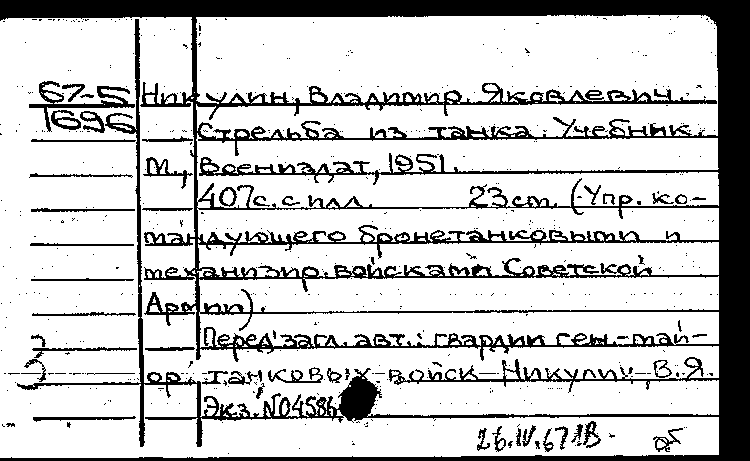 67-5
1696
Никулин, Владимир Яковлевич.
Стрельба из танка. Учебник.
М., Воениздат, 1951.
407с. с илл. 23см. (Упр. ко-
мандующего бронетанковыми и
механизир. войсками Советской
Армии).
Перед загл. авт.: гвардии ген.-май-
ор танковых войск Никулин, В.Я.
Экз. №04586
26.IV.67 1В.